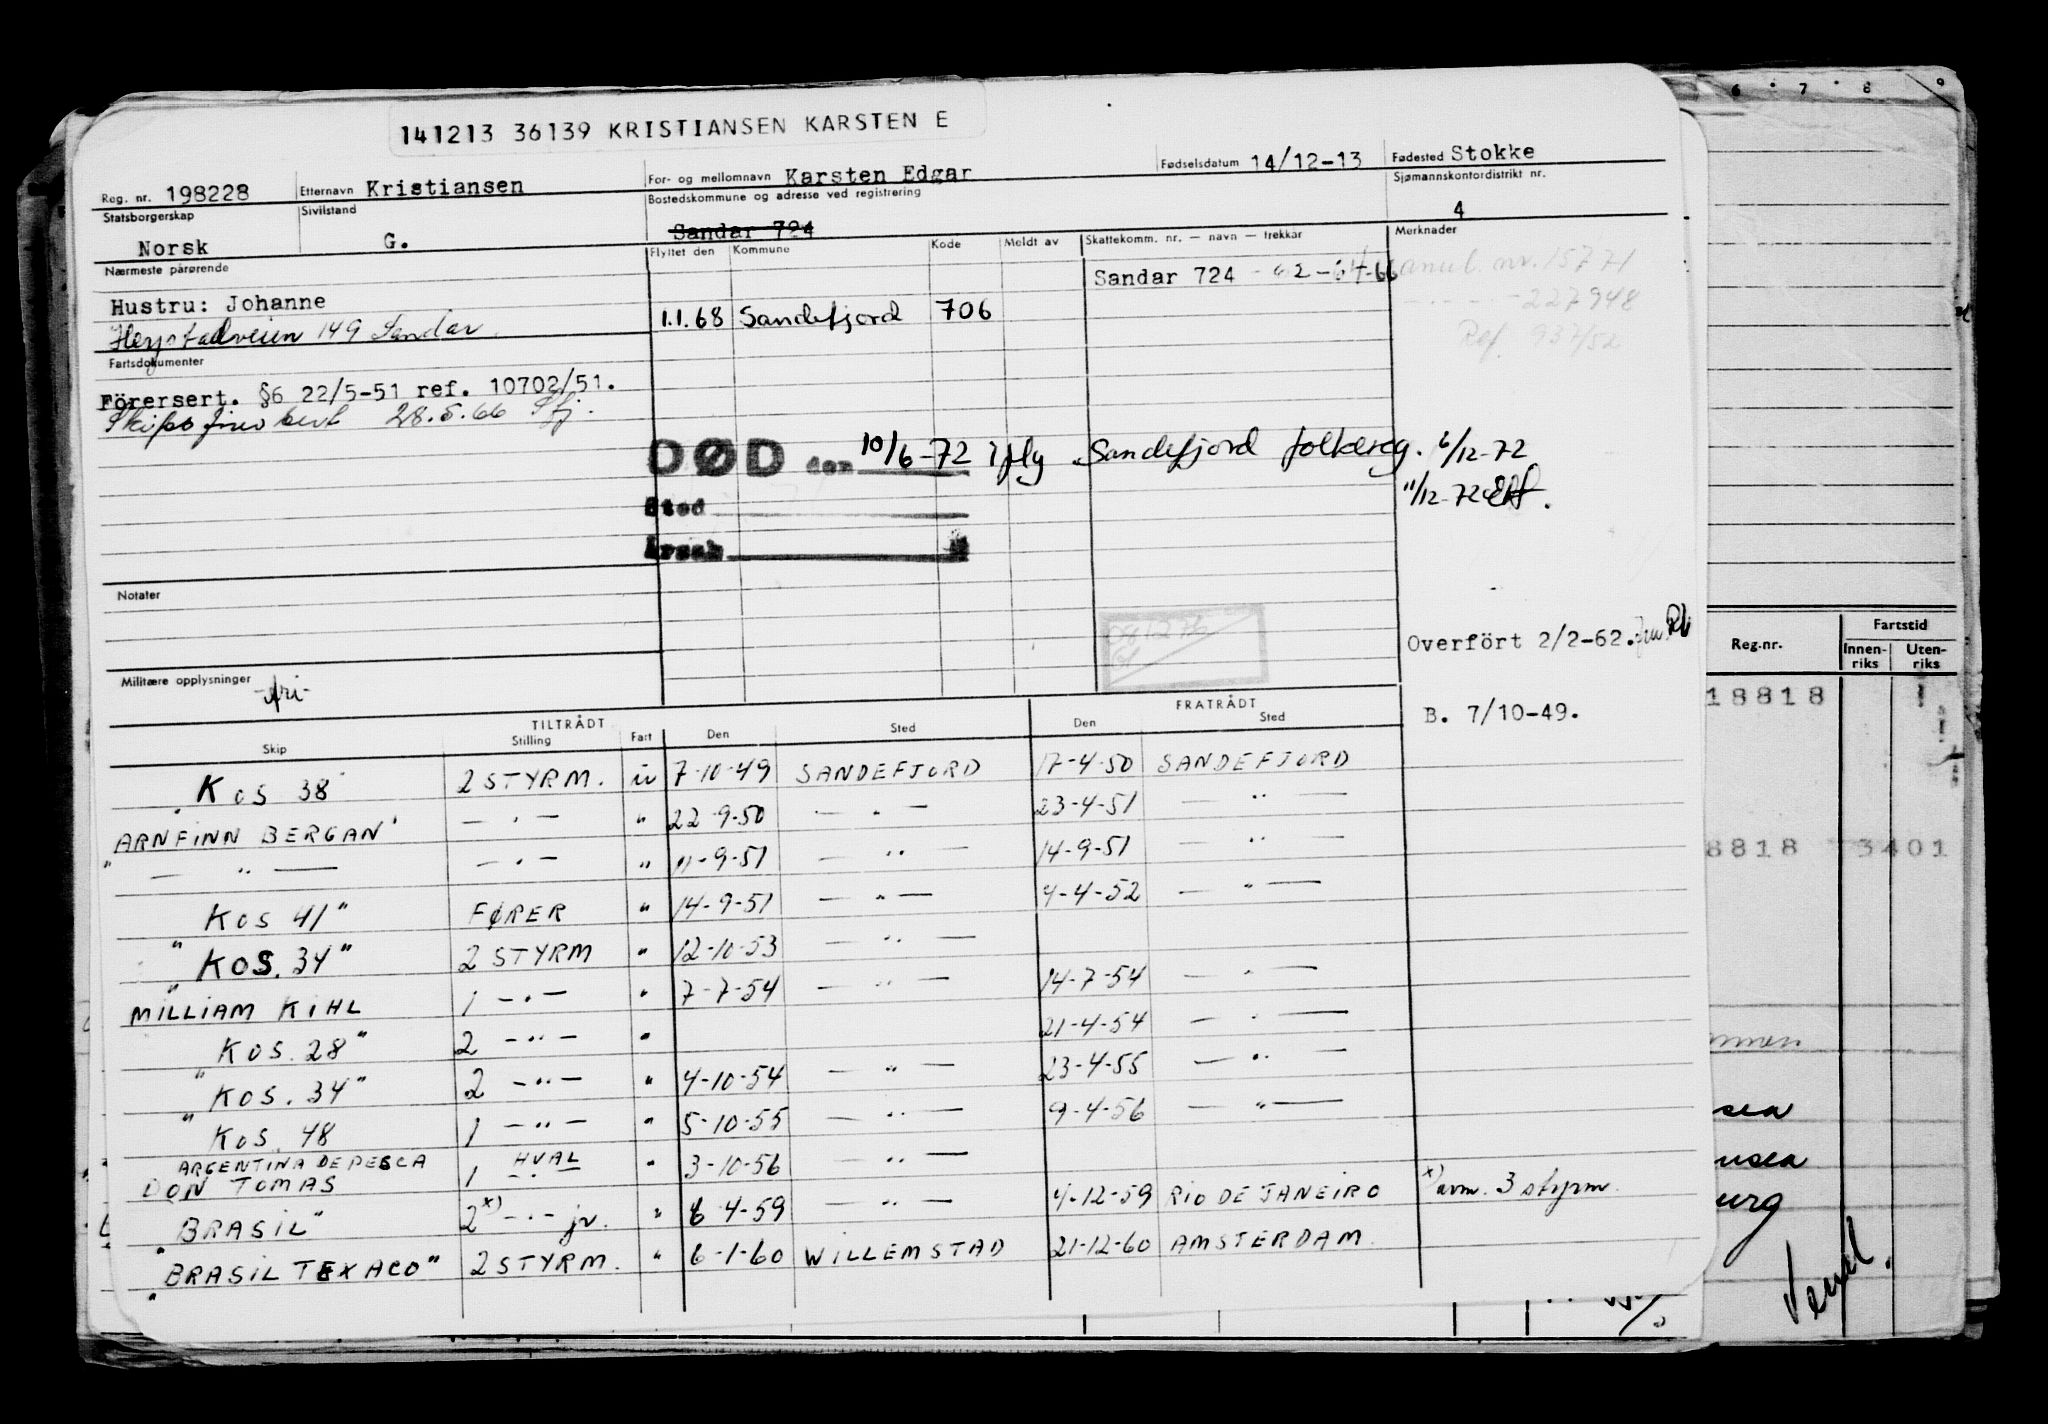 141213 36139 KRISTIANSEN KARSTEN E
Reg. nr. 198228 Etternavn Kristiansen For- og mellomnavn Karsten Edgar Fødselsdatum 14/12-13 Fødested Stokke
Statsborgerskap Norsk Sivilstand G. Bostedskommune og adresse ved registrering Sandar 724 Sjømannskontordistrikt nr. 4
Nærmeste pårørende Flyttet den Kommune Kode Meldt av Skattekomm. nr. — navn — trekkår Merknader
Sandar 724 - 62-64-66 anul. nr. 15771
Hustru: Johanne 1.1.68 Sandefjord 706 227948
149 Sandar Ref. 937/52
Fartsdokumenter
Förersert. §6 22/5-51 ref. 10702/51.
28.5.66
DØD den 10/6-72 iflg Sandefjord folkereg. 6/12-72
11/12-72
Sted
Årsak
Notater
Overfört 2/2-62.
Militære opplysninger -fri-
B. 7/10-49.
TILTRÅDT FRATRÅDT
Skip Stilling Fart Den Sted Den Sted
"KOS 38" 2 STYRM. u 7-10-49 SANDEFJORD 17-4-50 SANDEFJORD
"ARNFINN BERGAN" — " — " 22-9-50 — " — 23-4-51 — " —
— " — — " — " 11-9-51 — " — 14-9-51 — " —
"KOS 41" FØRER " 14-9-51 — " — 4-4-52 — " —
"KOS. 34" 2 STYRM " 12-10-53 — " —
MILLIAM KIHL 1 — " — " 7-7-54 — " — 14-7-54 — " —
"KOS. 28" 2 — " — " 21-4-54 — " —
"KOS. 34" 2 — " — " 4-10-54 — " — 23-4-55 — " —
"KOS. 48 1 — " — " 5-10-55 — " — 9-4-56 — " —
ARGENTINA DE PESCA HVAL
DON TOMAS 1 — " — " 3-10-56 — " —
"BRASIL" 2 x) — " — jr. " 6 4-59 — " — 4-12-59 RIO DE JANEIRO x) 3 styrm.
"BRASIL TEXACO" 2 STYRM. " 6-1-60 WILLEMSTAD 21-12-60 AMSTERDAM
6 7 8 9
Reg.nr. Fartstid
Innen-riks Uten-riks
18818
8818 3401